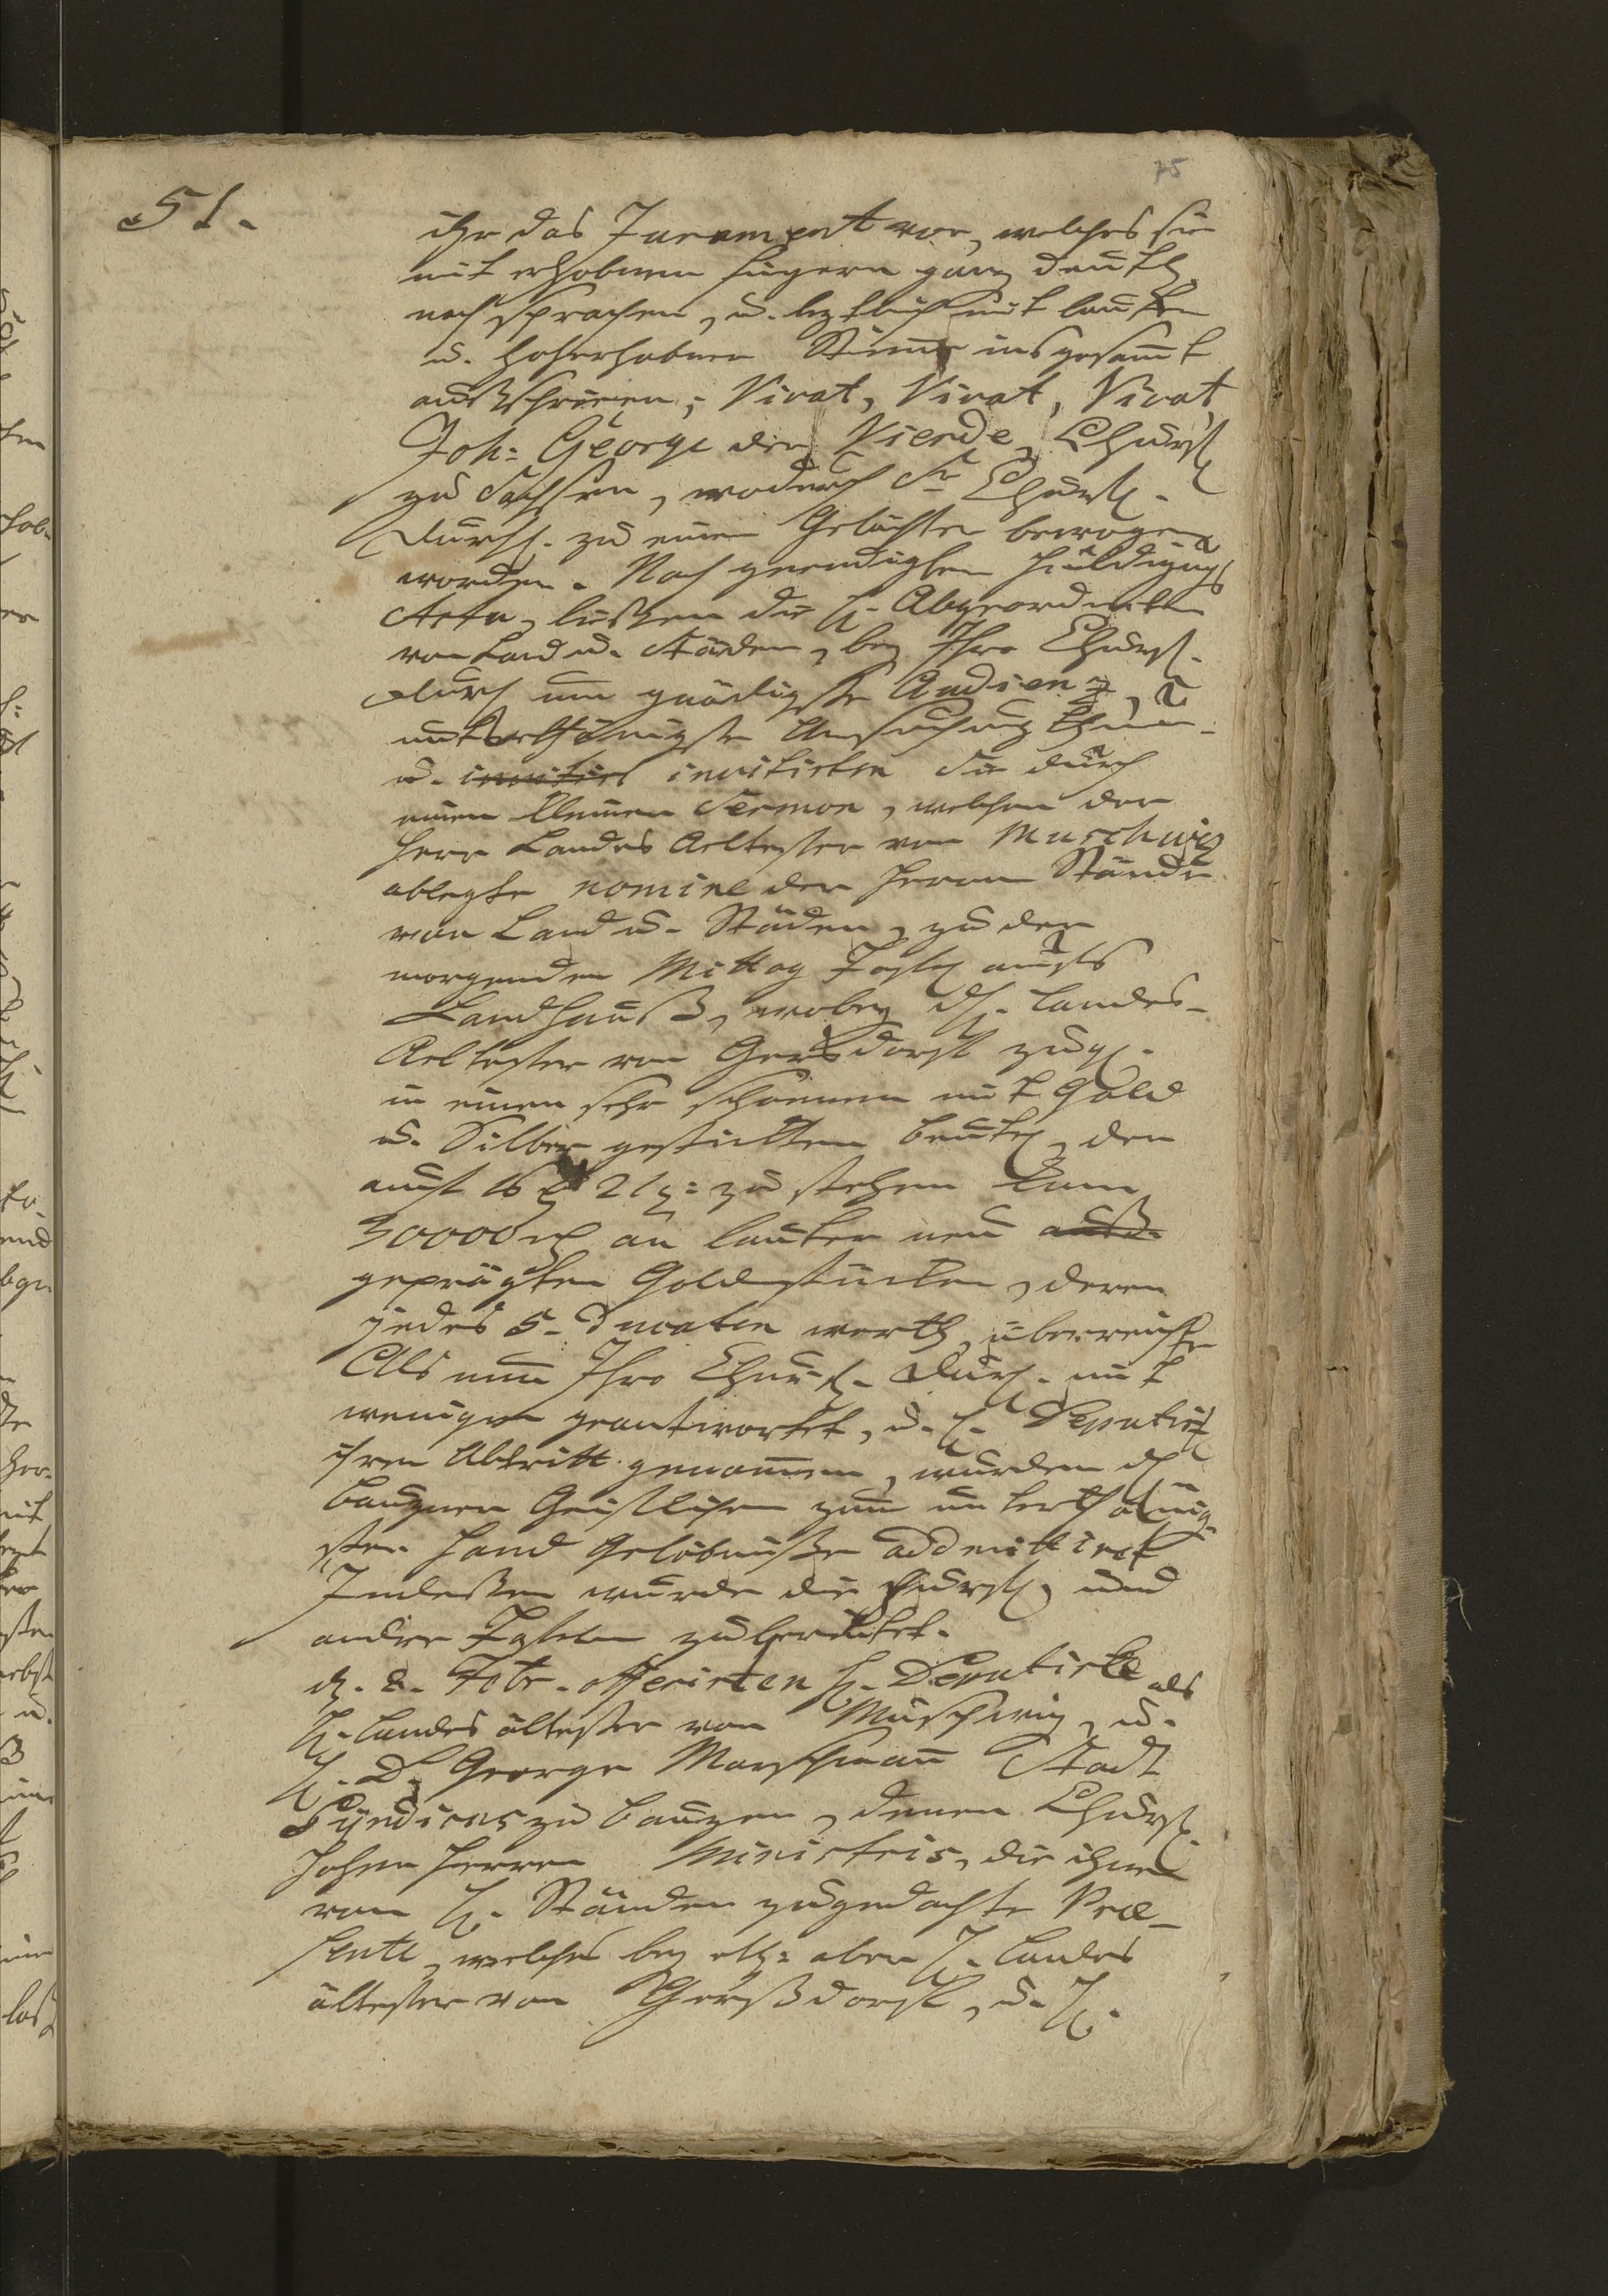 75
51.
ihr das Jurament vor, welches sie
mit erhobenen fingern gantz deutl.
nachsprachen, u. letzlich mit lauter
u. hocherhobener Stimme insgesamt
außschrieen; Vivat, Vivat, Vivat,
Joh: George der Vierde, Churf.
zu Sachsen, wodurch Sr. Churfl.
Durchl. zu einen Gelächter bewogen
worden. Nach geendigten Huldigungs
Actu, ließen die H. Abgeordneten
von Land u. Städen, bey Ihro Churfl.
Durch um gnädigste Audienz,
unterthänigste Ansuchung thun
u. invitirten Sie durch
einen kleinen Sermon, welchen der
Herr Landes Aeltester von Muschwitz
ablegte nomine der Herren Stände
von Land u. Städen, zu der
morgenden Mittag Tafel aufs
Landhauß, wobey H. Landes-
Aeltester von Gersdorff zugl.
in einen sehr schönen mit Gold
u. Silber gestickten Beutel, der
auf 16 21 zu stehen kam
30000 an lauter neu auß-
geprägten Goldstücken, deren
jedes 5. Ducaten werth, überreichte
Als nun Ihro Churfl. Durch. mit
wenigen geantwortet, u. H. Deputirt
ihren Abtritt genommen, wurden die
Bautzner Geistlichen zum unterthänig-
sten Hand Gelöbnüße admittirt
Indeßen wurde die Churfl. und
andere Tafeln zubereitet.
d. 2. Febr. offerirten H. Deputirte als
H. Landes ältester von Muschwig, u.
H. D. George Marschmann Stadt
Syndicus zu Bautzen, denen Churfl.
hohen Herren Ministris, die ihnen
von H. Ständen zugedachte Præ-
sente, welches bey aber H. Landes
ältester von Gerßdorff, u. H.